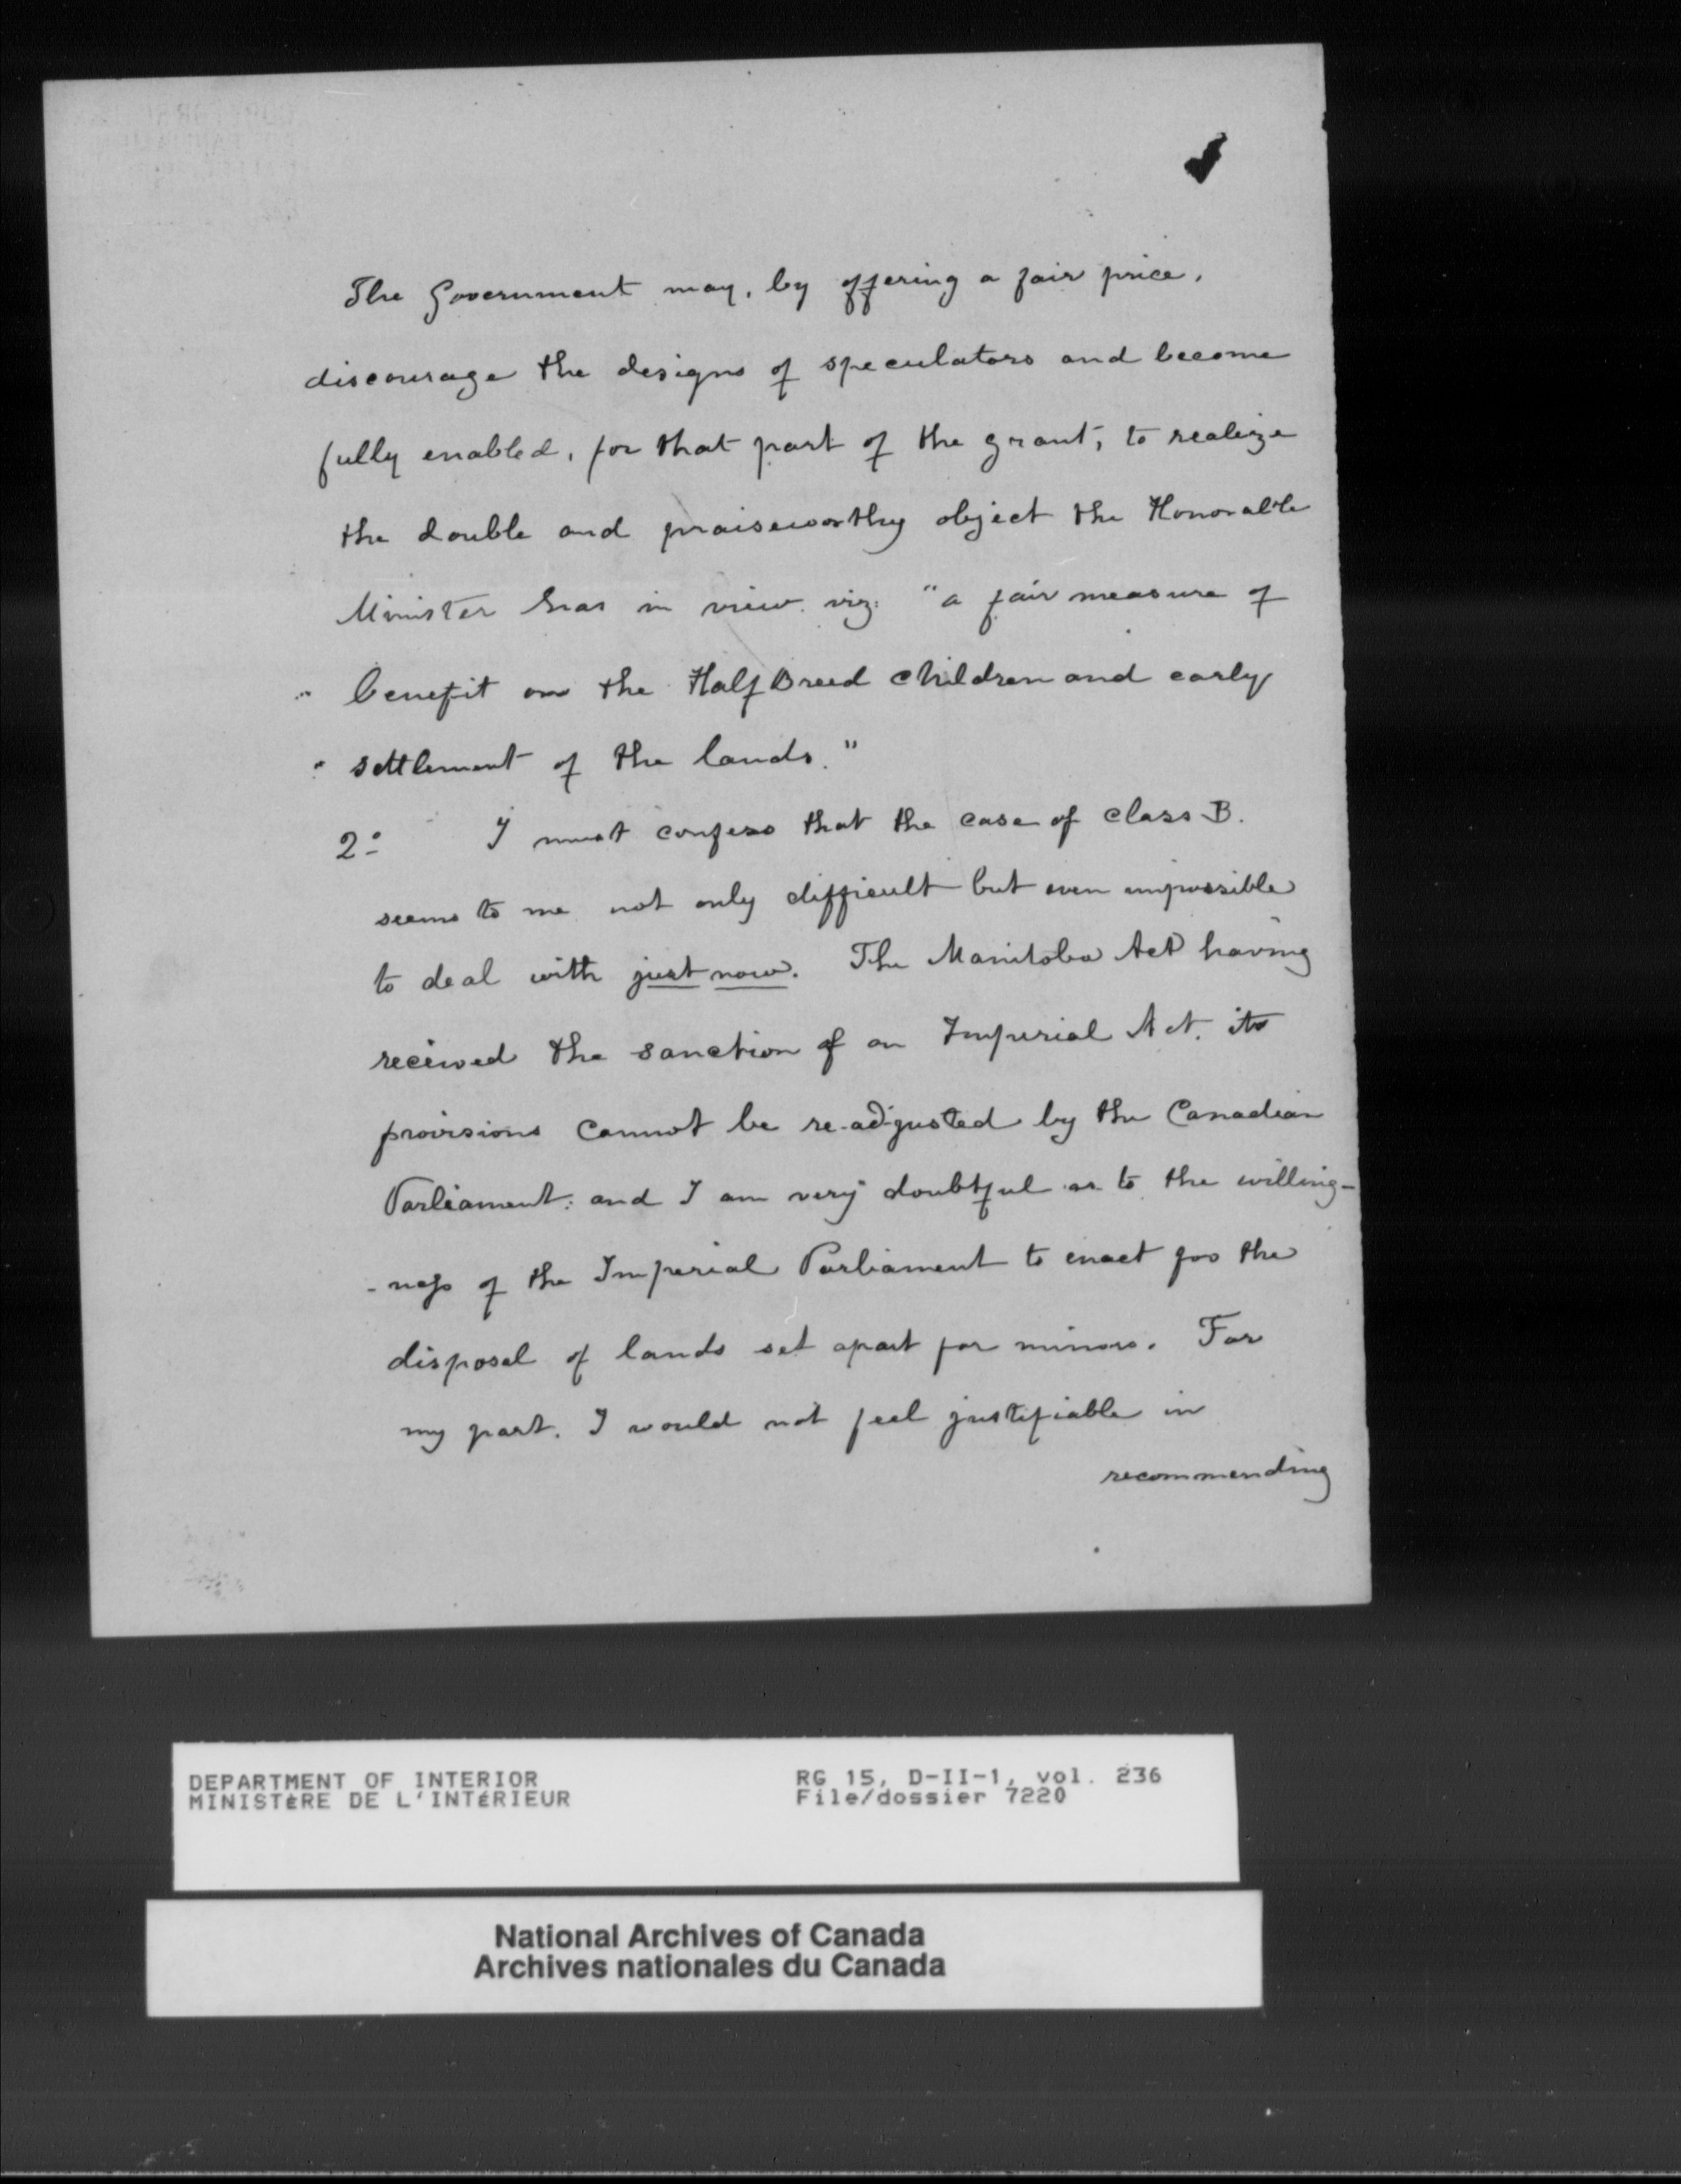 The Government may, by offering a fair price,
discourage the designs of speculators and become
fully enabled, for that part of the grant, to realize
the double and praiseworthy object the Honorable
Minister has in view. viz: "a fair measure of
" benefit on the Half Breed children and early
" settlement of the lands."
2º I must confess that the case of class B.
seems to me not only difficult but even impossible
to deal with just now. The Manitoba Act having
received the sanction of an Imperial Act, its
provisions cannot be re-adjusted by the Canadian
Parliament: and I am very doubtful as to the willing-
-ness of the Imperial Parliament to enact for the
disposal of lands set apart for minors. For
my part, I would not feel justifiable in
recommending
DEPARTMENT OF INTERIOR RG 15, D-II-1, vol. 236
MINISTÈRE DE L'INTÉRIEUR File/dossier 7220
National Archives of Canada
Archives nationales du Canada